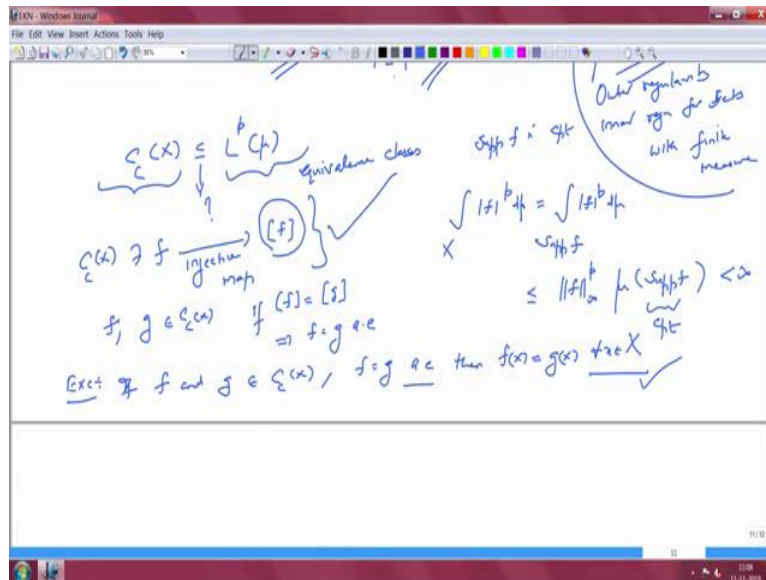 EKN - Windows Journal
File Edit View Insert Actions Tools Help
Outer regularity
inner regn for sets
with finite
measure
C_c(X) ⊆ L^p(μ)
equivalence classes
?
supp f is cpt
C_c(X) ∋ f → [f]
injective
map
∫_X |f|^p dμ = ∫_{supp f} |f|^p dμ
≤ ||f||_∞^p μ(supp f) < ∞
cpt
f, g ∈ C_c(X) if [f] = [g]
⇒ f = g a.e
Exc: If f and g ∈ C_c(X), f = g a.e then f(x) = g(x) ∀ x ∈ X
11/12
11
11:08